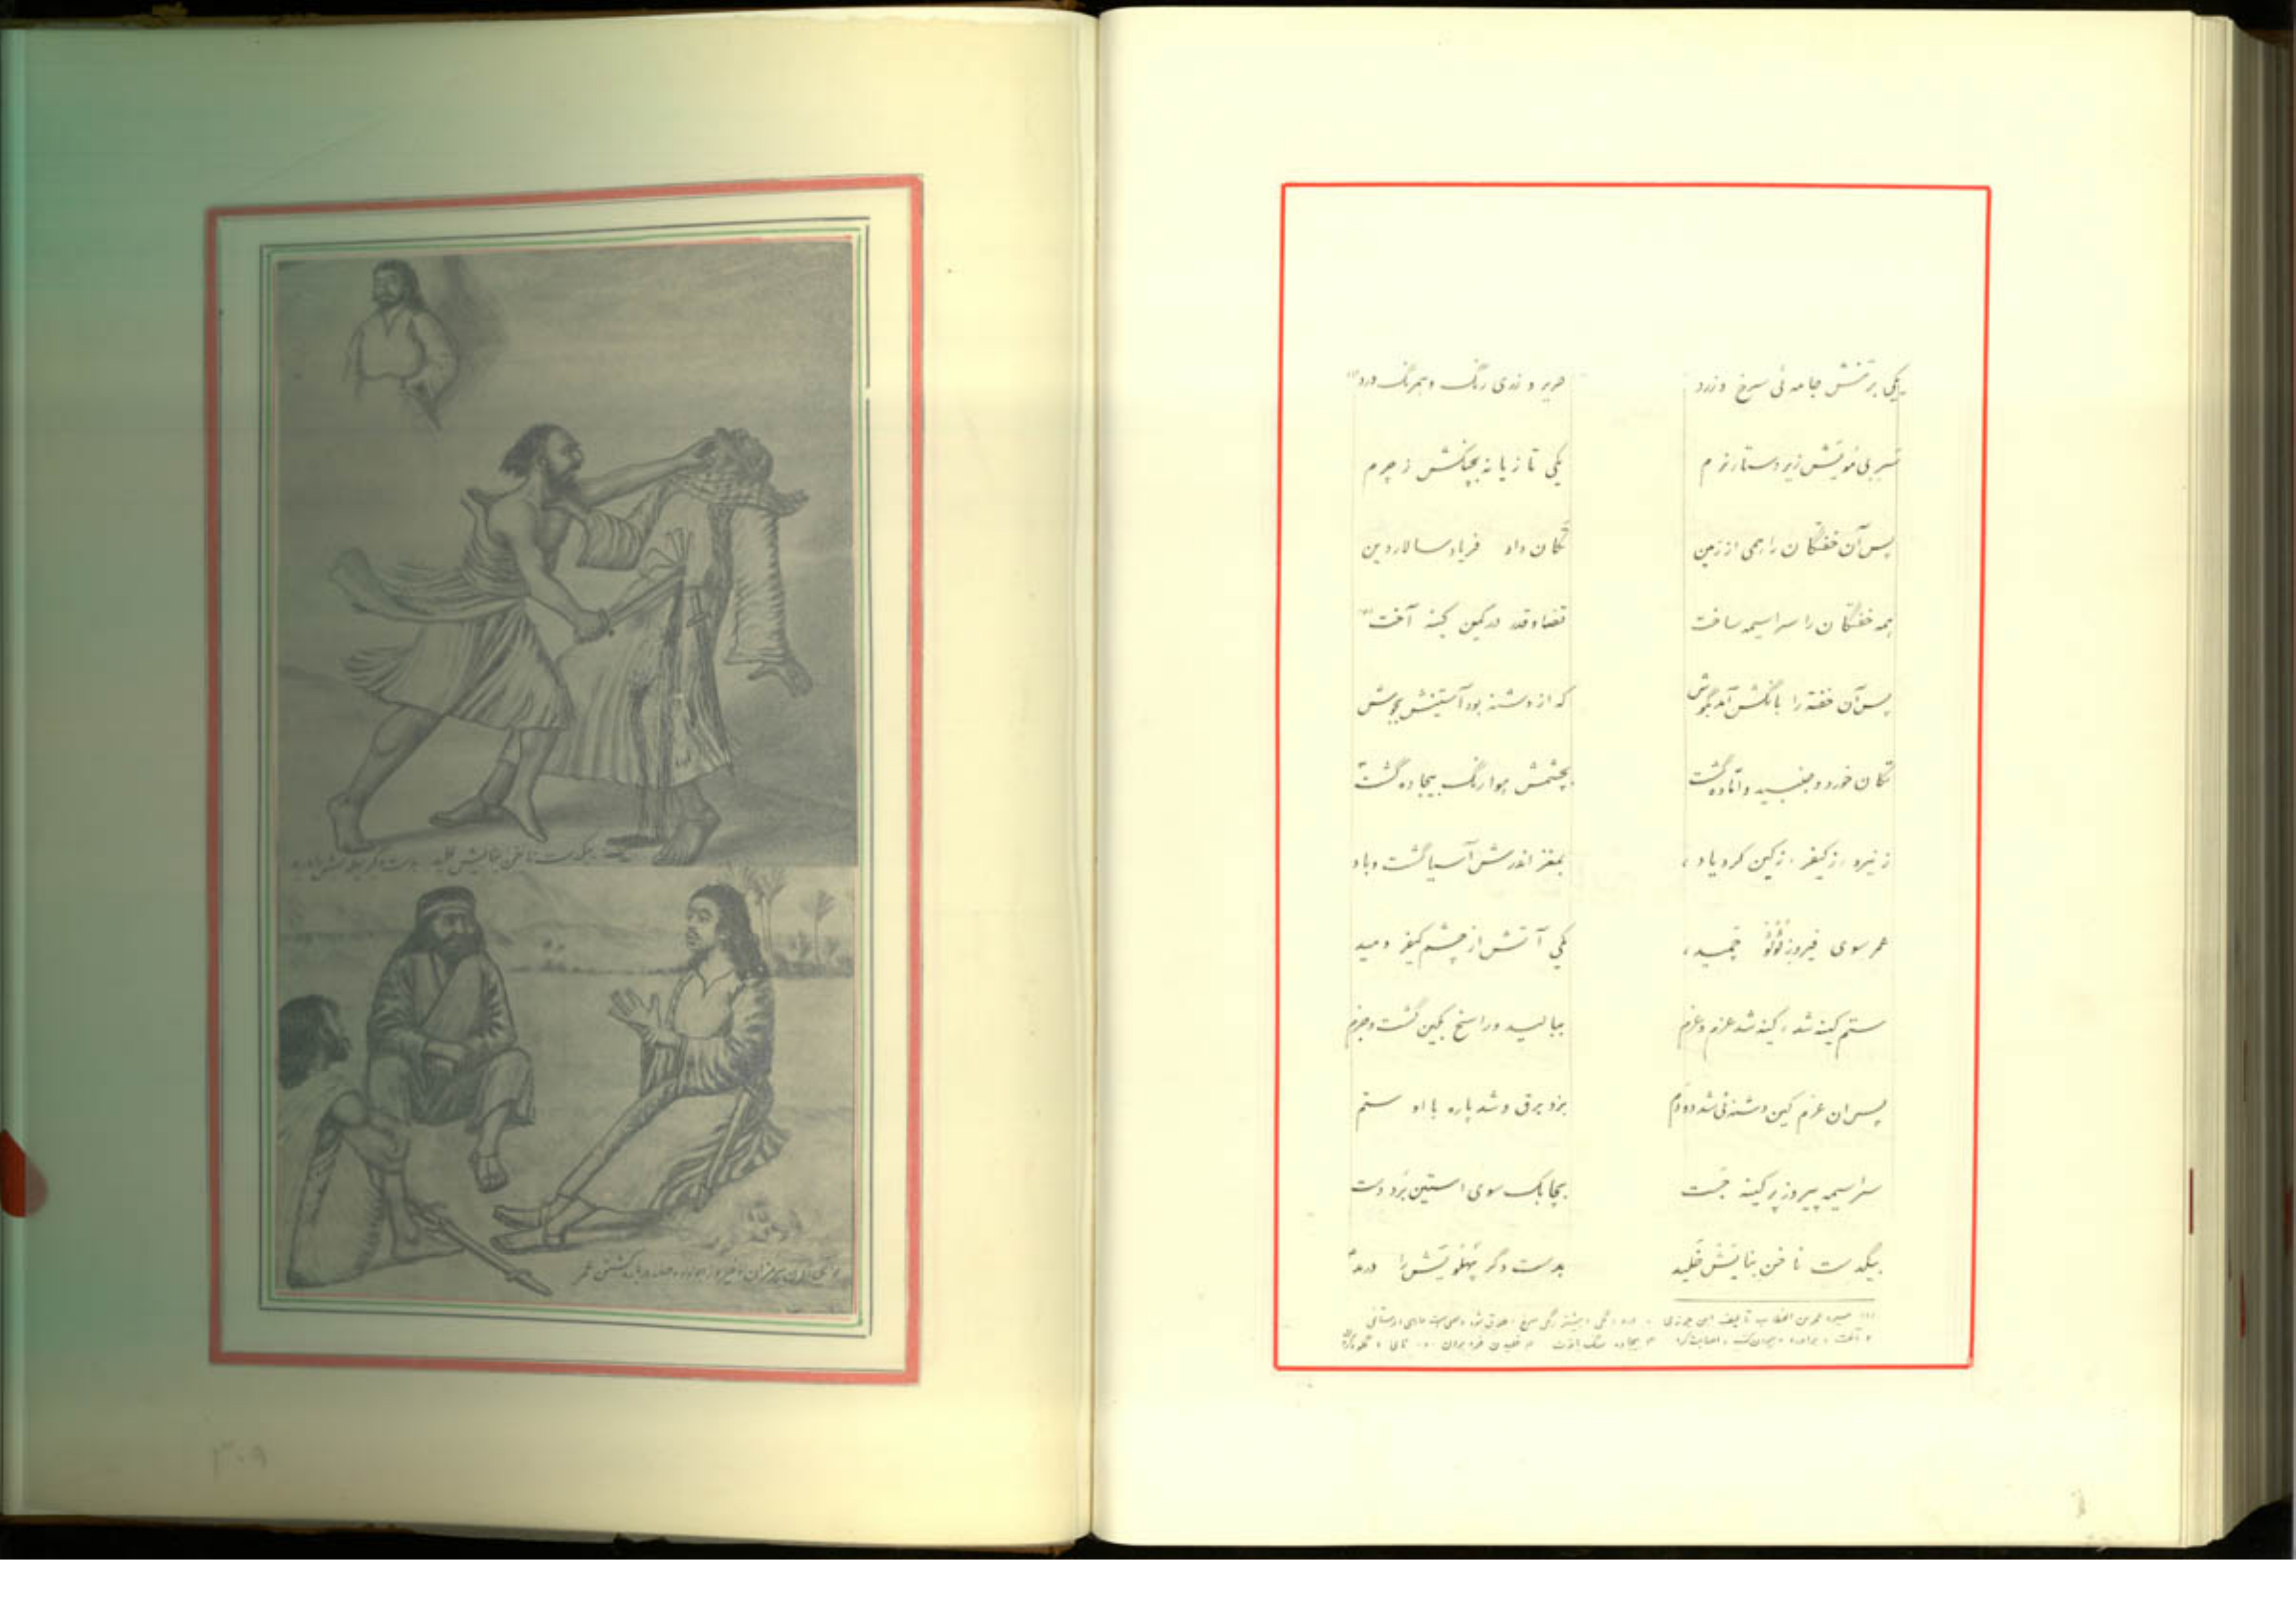 یکی بر تنش جامه ئی سرخ و زرد
حریر و زدی رنگ و همرنگ ورد
سر بی مویش زیر دستار نرم
یکی تازیانه بچنگش ز چرم
پس آن خفتگان را همی از زمین
تکان داد فریاد سالار دین
همه خفتگان را سراسیمه ساخت
قضا و قدر در کمین کینه آخت
پس آن خفته را بانگش آمد بگوش
که از دشنه بود آستینش بجوش
تکان خورد و جنبید و آماده گشت
بچشمش هوا رنگ بیجاده گشت
ز نیرو، ز کیفر، ز کین کرد یاد،
بمغز اندرش آسیا گشت و باد
عمر سوی فیروز لؤلؤ چمید،
یکی آتش از چشم کیفر دمید
ستم کینه شد، کینه شد عزم و عزم
ببالید و راسخ بکین گشت و جزم
پس آن عزم کین دشنه ئی شد دو دم
بزد برق و شد پاره با او ستم
سراسیمه پیروز پر کینه جست
بچابک سوی استین برد دست
بیکدست ناخن بنایش خلید
بدست دگر پهلویش را درید
سیره عمر بن الخطاب تألیف ابن جوزی
بیکدست ناخن بنایش خلید بدست دگر پهلویش را درید
هرمزان و فیروز درباره کشتن عمر
۳۰۹